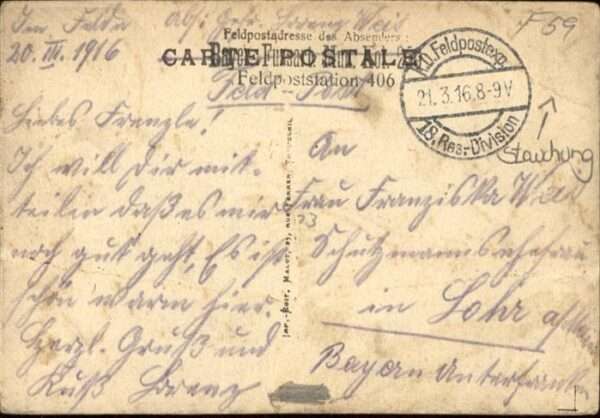 Im Felde
20. III. 1916
Abs: Gefr. Lorenz Weis
Feldpostadresse des Absenders:
CARTE POSTALE
Feldpoststation 406
Feld-Post
F 59
K.D. Feldpostexp.
21. 3. 16. 8-9V
18. Res.-Division
Stauchung
Liebes Frenzle!
Ich will Dir mit-
teilen daß es mir
noch gut geht, Es ist
schön warm hier.
Herzl. Gruß und
Kuß Lorenz
23
An
Frau Franziska Weis
Schutzmannsehefrau
in Lohr a/Main
Bayern Unterfranken